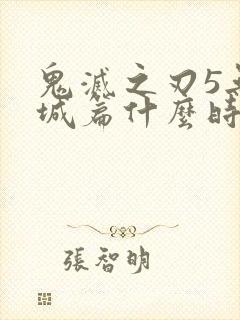 鬼滅之刃5
城篇什麼時
張智明